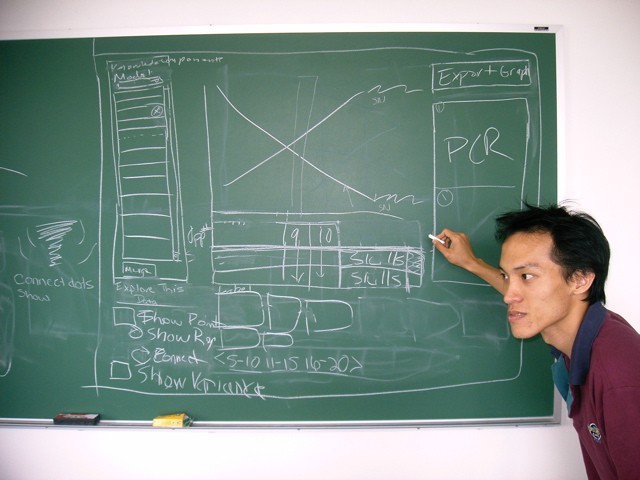 Model
Export Graph
PCR
SN
SN
Opp#
9 10
Skills
Skills
Merge
Connect dots
Show
Explore This
Data
Label
Show Point
Show Reg
Connect
<5-10 11-15 16-20>
Show